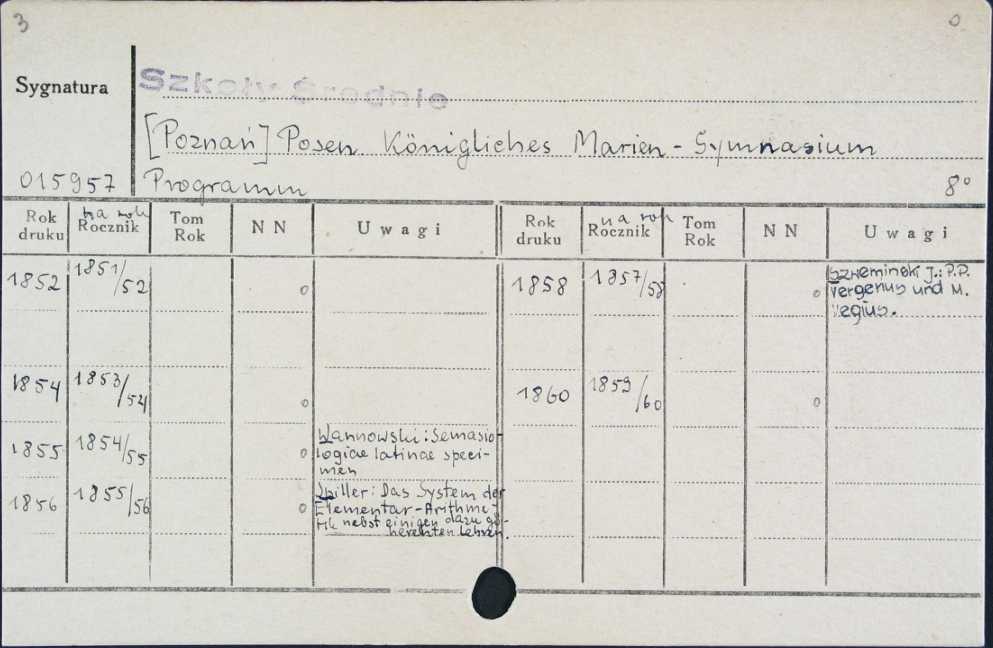 3
0
Sygnatura
Szkoły Średnie
[Poznań] Posen Königliches Marien-Gymnasium
015957
Programm
8°
Rok druku
na rok Rocznik
Tom Rok
NN
Uwagi
Rok druku
na rok Rocznik
Tom Rok
NN
Uwagi
1852 1851/52 0
1858 1857/58 0
J.: P.P.
Vergerius und M.
Vegius.
1854 1853/54 0
1860 1859/60 0
1855 1854/55 0
Wannowski: Semasio-
logiae latinae speci-
men
1856 1855/56 0
Spiller: Das System der
Elementar-Arithme-
tik nebst einigen dazu
Lehren.